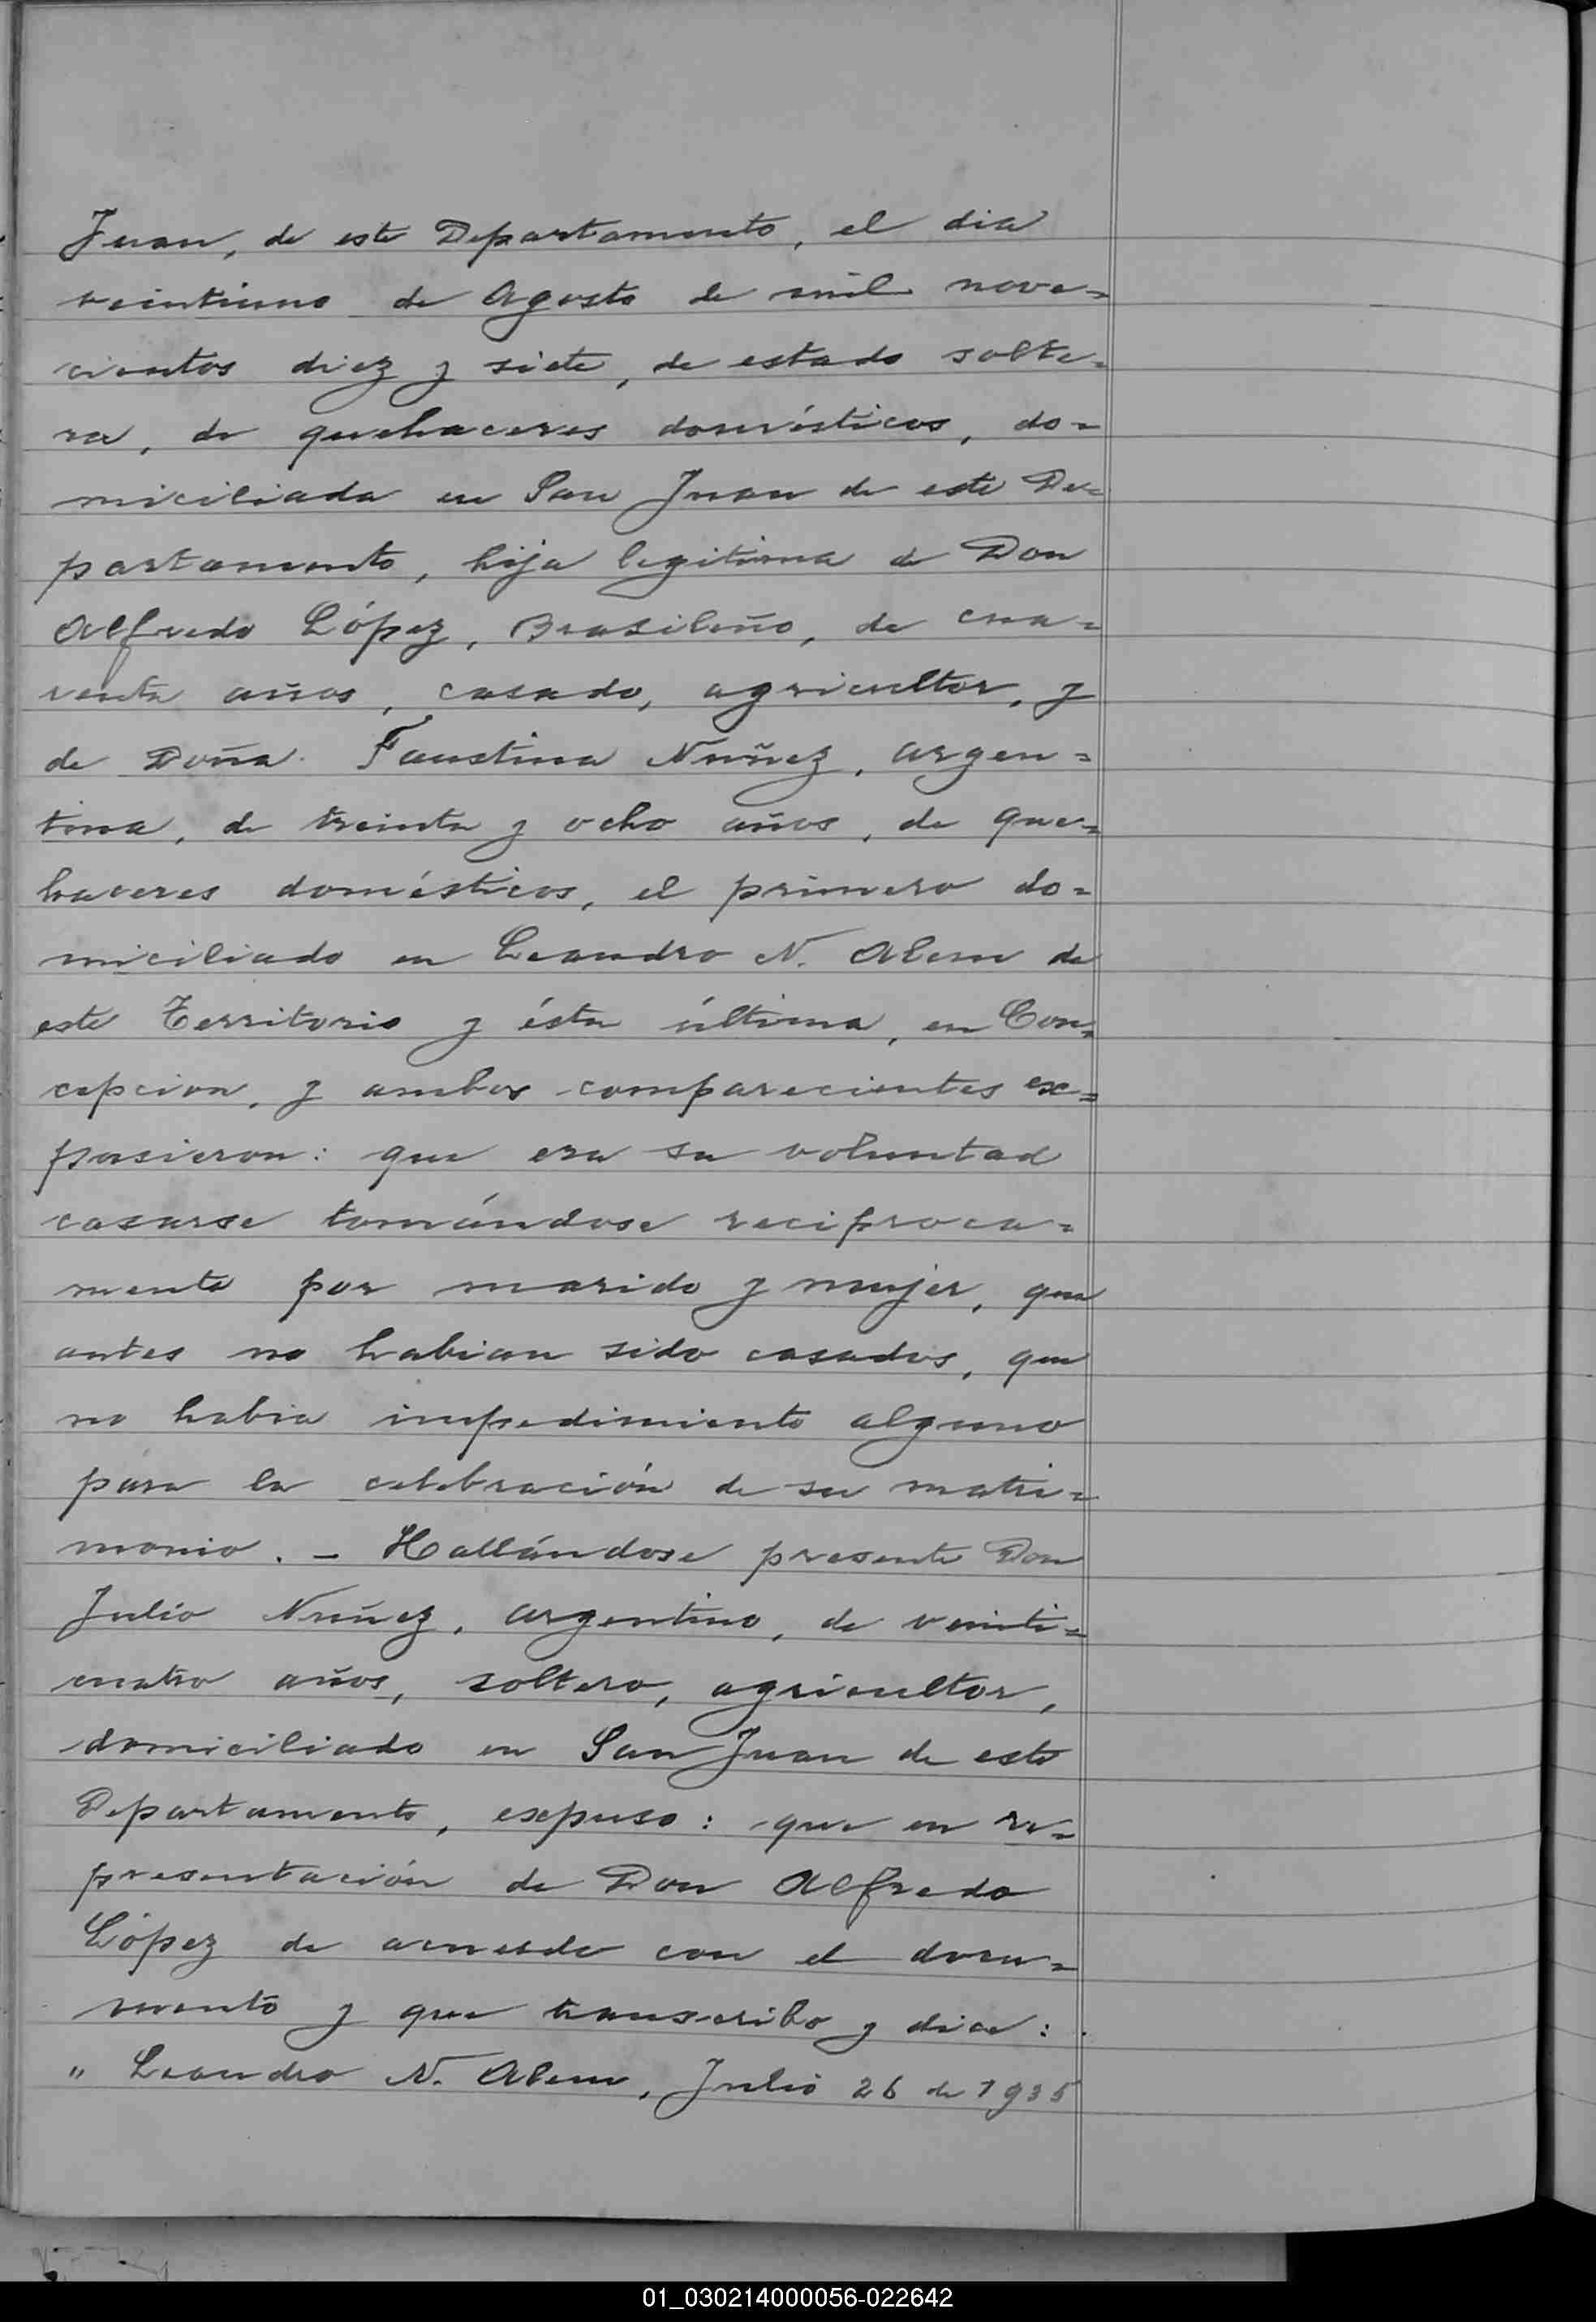 Juan, de este Departamento, el dia
veintiuno de Agosto de mil nove=
cientos diez y siete, de estado solte=
ra, de quehaceres domésticos, do=
miciliada en San Juan de este De=
partamento, hija legitima de Don
Alfredo López, Brasileño, de cua=
renta años, casado, agricultor, y
de Doña Faustina Nuñez, argen=
tina, de treinta y ocho años, de que=
haceres domésticos, el primero do=
miciliado en Leandro N. Alem de
este Territorio y ésta última, en Con=
cepcion, y ambos comparecientes ex=
pusieron: que era su voluntad
casarse tomándose reciproca=
mente por marido y mujer, que
antes no habian sido casados, que
no habia impedimiento alguno
para la celebración de su matri=
monio. _ Hallándose presente Don
Julio Nuñez, argentino, de veinti=
cuatro años, soltero, agricultor,
domiciliado en San Juan de este
Departamento, expuso: que en re=
presentación de Don Alfredo
López de acuerdo con el docu=
mento y que transcribo y dice:
" Leandro N. Alem, Julio 26 de 1935
01_030214000056-022642